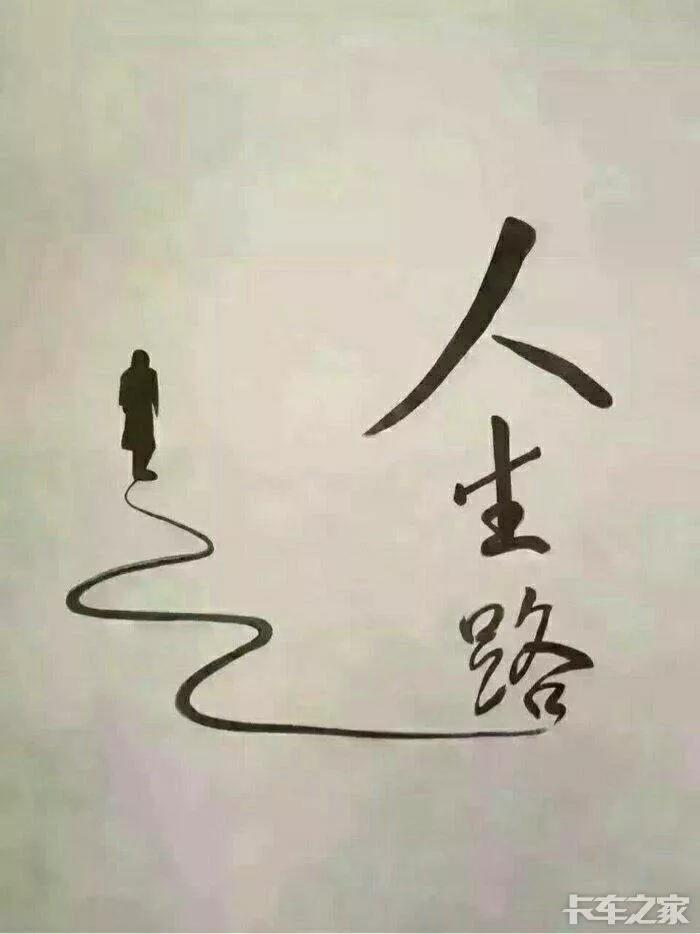 人生路
卡车之家